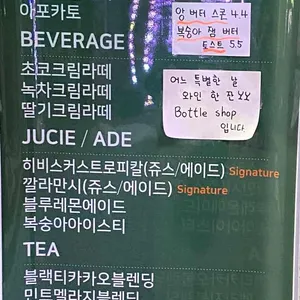 아포카토
앙 버터 스콘 4.4
복숭아 잼 버터
토스트 5.5
BEVERAGE
초코크림라떼
녹차크림라떼
딸기크림라떼
어느 특별한 날
와인 한 잔보보
Bottle shop
입니다
JUCIE / ADE
히비스커스트로피칼(쥬스/에이드) Signature
깔라만시(쥬스/에이드) Signature
블루레몬에이드
복숭아아이스티
TEA
블랙티카카오블렌딩
민트멜라지블렌딩